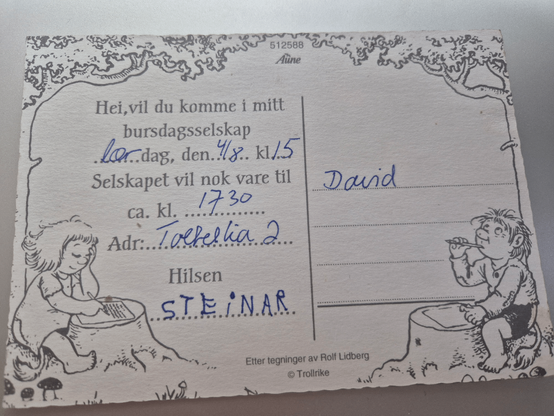 512588
Aune
Hei, vil du komme i mitt
bursdagsselskap
Lørdag, den 4/8. kl. 15
Selskapet vil nok vare til
ca. kl. 1730
Adr: 2
Hilsen
STEINAR
David
Etter tegninger av Rolf Lidberg
© Trollrike